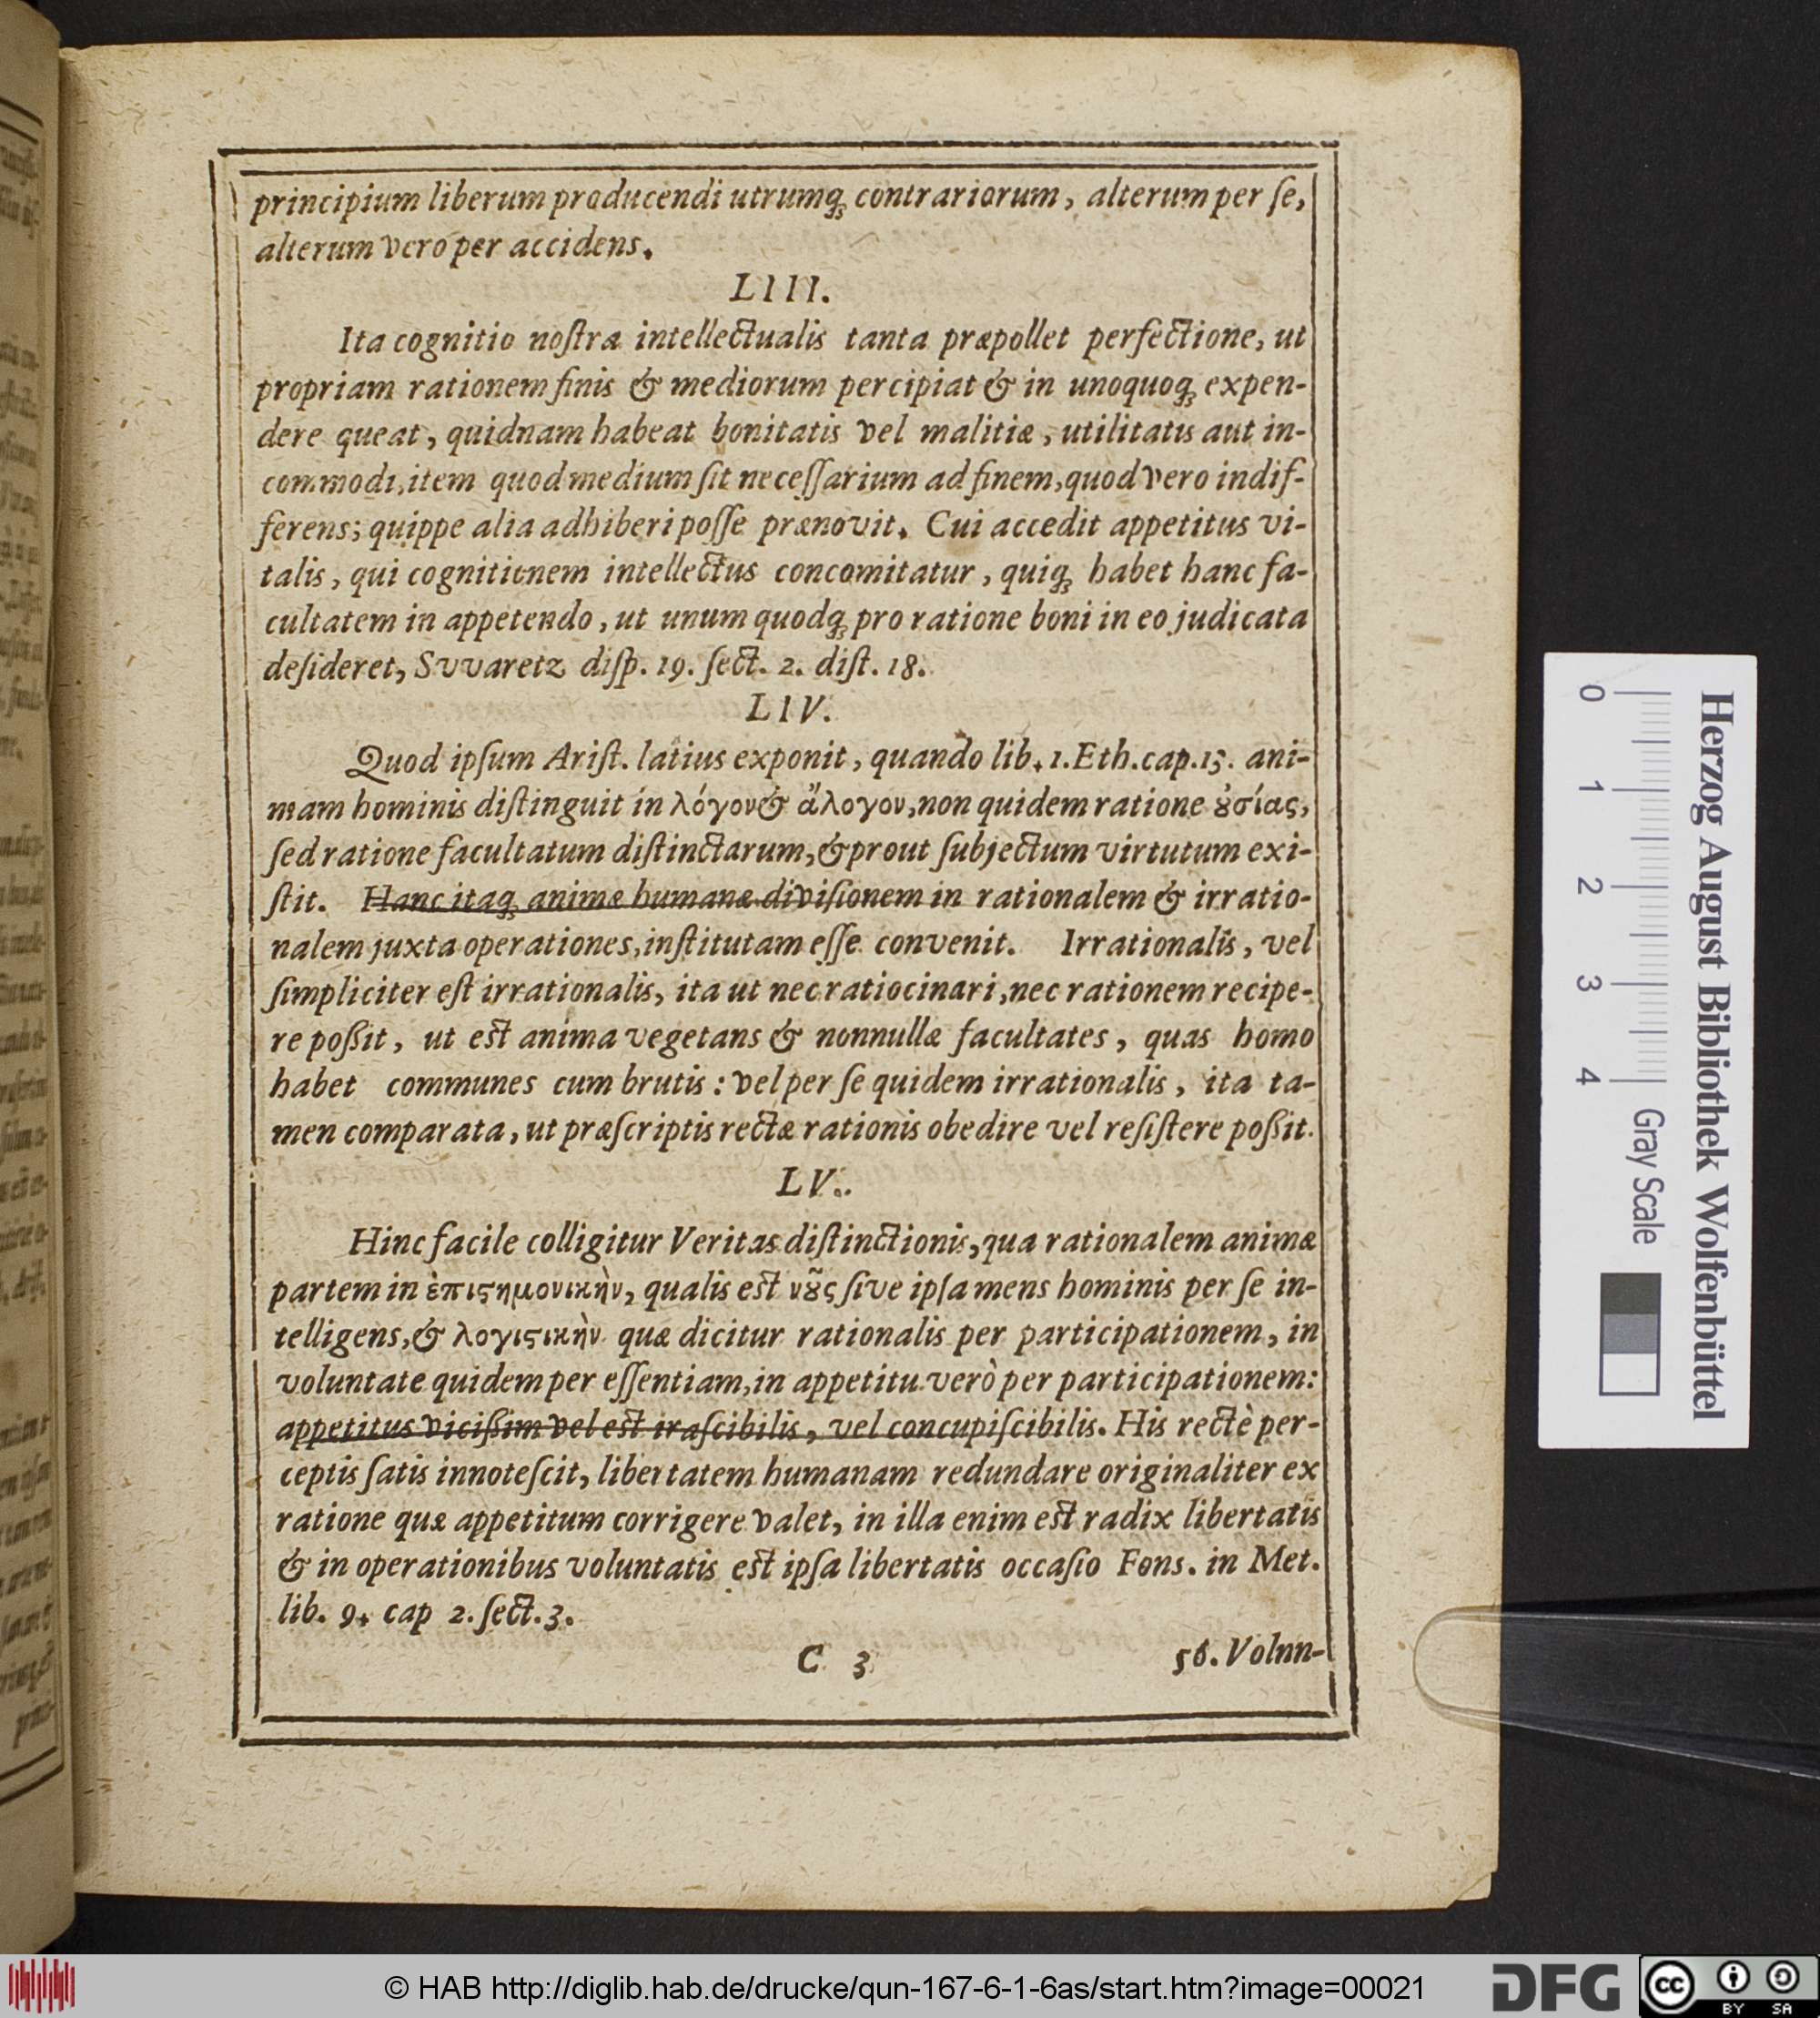 principium liberum producendi utrumq́ꝫ contrariorum, alterum per ſe,
alterum vero per accidens.
LIII.
Ita cognitio noſtra intellectualis tanta præpollet perfectione, ut
propriam rationem finis & mediorum percipiat & in unoquoqꝫ expen-
dere queat, quidnam habeat bonitatis vel malitiæ, utilitatis aut in-
commodi, item quod medium ſit neceſſarium ad finem, quod vero indif-
ferens; quippe alia adhiberi poſſe prænovit. Cui accedit appetitus vi-
talis, qui cognitionem intellectus concomitatur, quiqꝫ habet hanc fa-
cultatem in appetendo, ut unum quodqꝫ pro ratione boni in eo judicata
deſideret, Svvaretz diſp. 19. ſect. 2. diſt. 18.
LIV.
Quod ipſum Ariſt. latius exponit, quando lib. 1. Eth. cap. 13. ani-
mam hominis diſtinguit in λόγον & ἄλογον, non quidem ratione ȣ̓σίας,
ſed ratione facultatum diſtinctarum, & prout ſubjectum virtutum exi-
ſtit. Hanc itaqꝫ animæ humanæ diviſionem in rationalem & irratio-
nalem juxta operationes, inſtitutam eſſe convenit. Irrationalis, vel
ſimpliciter eſt irrationalis, ita ut nec ratiocinari, nec rationem recipe-
re poßit, ut est anima vegetans & nonnullæ facultates, quas homo
habet communes cum brutis: vel per ſe quidem irrationalis, ita ta-
men comparata, ut præſcriptis rectæ rationis obedire vel reſiſtere poßit.
LV.
Hinc facile colligitur Veritas diſtinctionis, qua rationalem animæ
partem in ἐπιϛημονικὴν, qualis est νȣ͂ς ſive ipſa mens hominis per ſe in-
telligens, & λογιϛικὴν quæ dicitur rationalis per participationem, in
voluntate quidem per eſſentiam, in appetitu verò per participationem:
appetitus vicißim vel est iraſcibilis, vel concupiſcibilis. His rectè per-
ceptis ſatis innoteſcit, libertatem humanam redundare originaliter ex
ratione quæ appetitum corrigere valet, in illa enim est radix libertatis
& in operationibus voluntatis est ipſa libertatis occaſio Fons. in Met.
lib. 9. cap 2. ſect. 3.
C 3 56. Volnn-
Herzog August Bibliothek Wolfenbüttel
0 1 2 3 4 Gray Scale
© HAB http://diglib.hab.de/drucke/qun-167-6-1-6as/start.htm?image=00021
DFG
cc BY SA